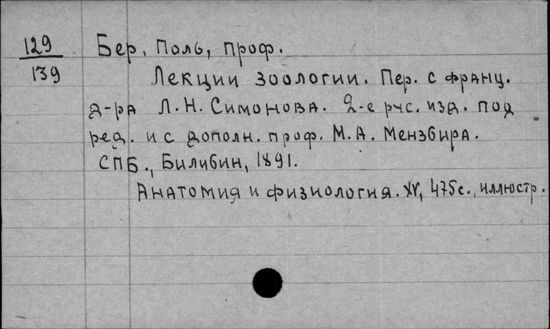 129
139
Бер, Поль, проф.
Лекции зоологии. Пер. с франц.
д-ра Л.Н. Симонова. 2-е рус. изд. под
ред. и с дополн. проф. М.А. Мензбира.
СПБ., Билибин, 1891.
Анатомия и физиология. XV, 475с., иллюстр.